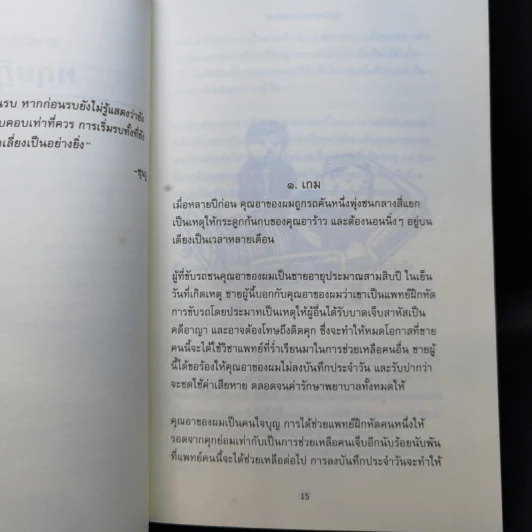 นรบ หากก่อนรบยังไม่รู้แสดงว่ายัง
บคอบเท่าที่ควร การเริ่มรบทั้งที่ยัง
เสี่ยงเป็นอย่างยิ่ง"
๑. เกม
เมื่อหลายปีก่อน คุณอาของผมถูกรถคันหนึ่งพุ่งชนกลางสี่แยก
เป็นเหตุให้กระดูกก้นกบของคุณอาร้าว และต้องนอนนิ่งๆ อยู่บน
เตียงเป็นเวลาหลายเดือน
ผู้ที่ขับรถชนคุณอาของผมเป็นชายอายุประมาณสามสิบปี ในเย็น
วันที่เกิดเหตุ ชายผู้นี้บอกกับคุณอาของผมว่าเขาเป็นแพทย์ฝึกหัด
การขับรถโดยประมาทเป็นเหตุให้ผู้อื่นได้รับบาดเจ็บสาหัสเป็น
คดีอาญา และอาจต้องโทษถึงติดคุก ซึ่งจะทำให้หมดโอกาสที่ชาย
คนนี้จะได้ใช้วิชาแพทย์ที่ร่ำเรียนมาในการช่วยเหลือคนอื่น ชายผู้
นี้ได้ขอร้องให้คุณอาของผมไม่ลงบันทึกประจำวัน และรับปากว่า
จะชดใช้ค่าเสียหาย ตลอดจนค่ารักษาพยาบาลทั้งหมดให้
คุณอาของผมเป็นคนใจบุญ การได้ช่วยแพทย์ฝึกหัดคนหนึ่งให้
รอดจากคุกย่อมเท่ากับเป็นการช่วยเหลือคนเจ็บอีกนับร้อยนับพัน
ที่แพทย์คนนี้จะได้ช่วยเหลือต่อไป การลงบันทึกประจำวันจะทำให้
15